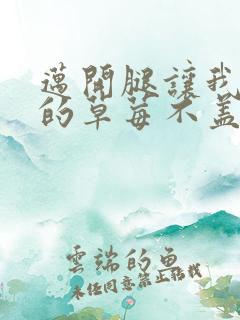 邁開腿讓我
的草莓不蓋
雲端的魚
未经同意禁止搭載